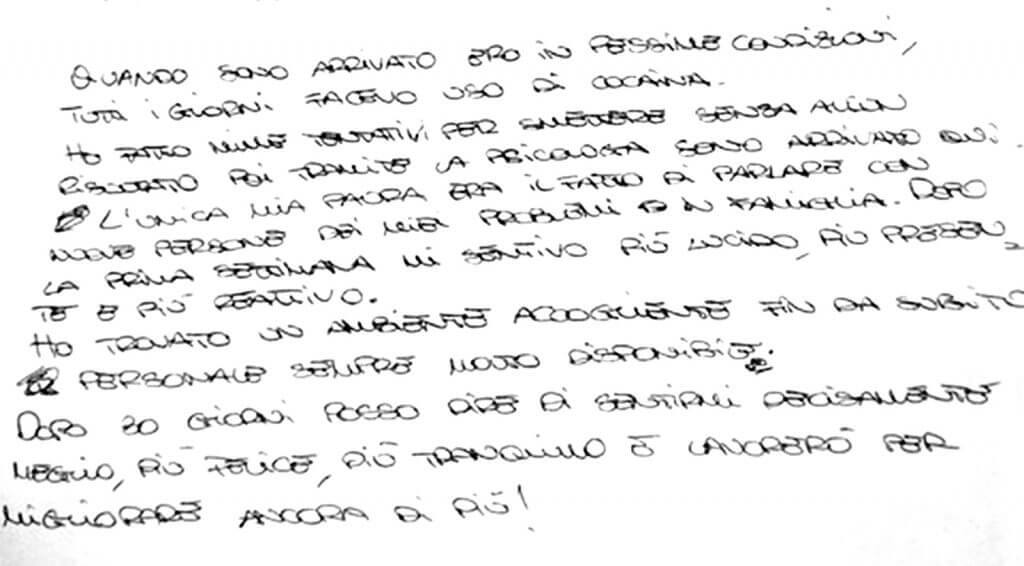 QUANDO SONO ARRIVATO ERO IN PESSIME CONDIZIONI,
TUTTI I GIORNI FACEVO USO DI COCAINA.
HO FATTO MILLE TENTATIVI PER SMETTERE SENZA ALCUN
RISULTATO POI TRAMITE LA PSICOLOGA SONO ARRIVATO QUI.
L'UNICA MIA PAURA ERA IL FATTO DI PARLARE CON
NUOVE PERSONE DEI MIEI PROBLEMI IN FAMIGLIA. DOPO
LA PRIMA SETTIMANA MI SENTIVO PIÙ LUCIDO, PIÙ PRESEN
TE E PIÙ REATTIVO.
HO TROVATO UN AMBIENTE ACCOGLIENTE FIN DA SUBITO
PERSONALE SEMPRE MOLTO DISPONIBILE.
DOPO 30 GIORNI POSSO DIRE DI SENTIRMI DECISAMENTE
MEGLIO, PIÙ FELICE, PIÙ TRANQUILLO E LAVORERÒ PER
MIGLIORARE ANCORA DI PIÙ!